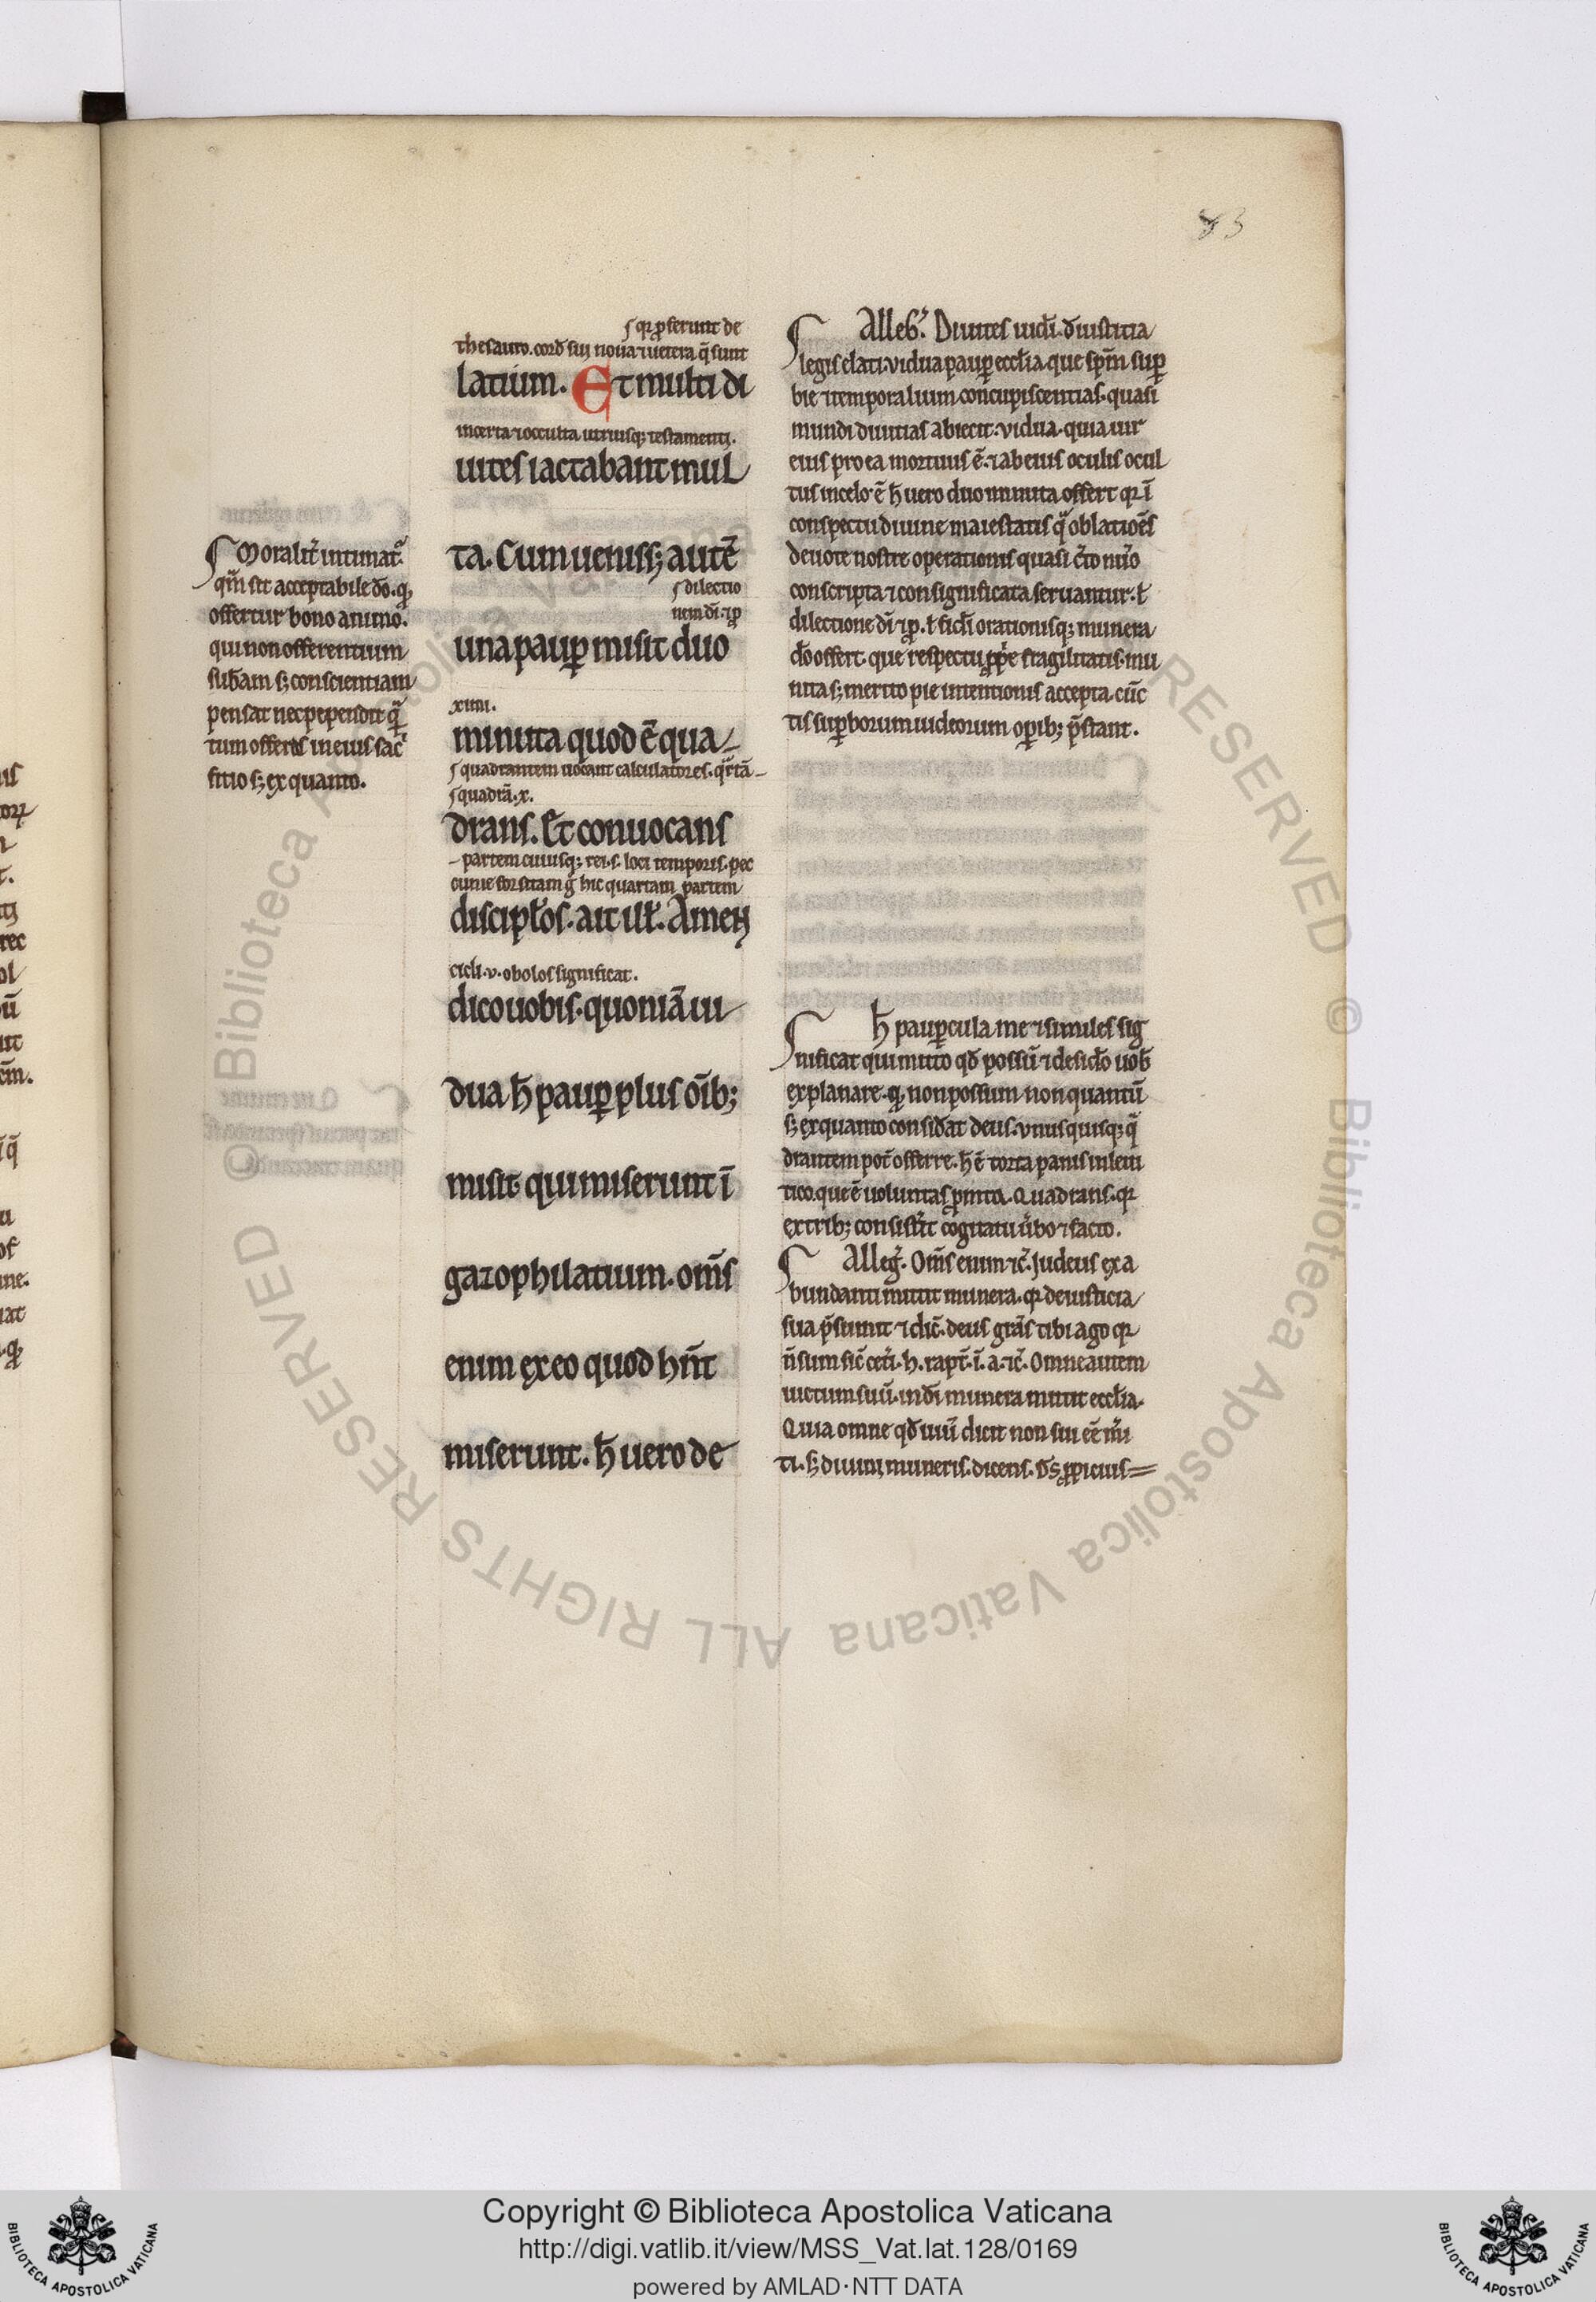 83
ʃ Moralit̉ intimat᷑.
qm̄ sit acceptabile dō. q̨
offertur bono animo.
qui non offerentium
sub̄am s; conscientiam
pensat nec pependit q̄
tum offeres in eius sac̉
fitio s; ex quanto.
ʃ qr ꝓferunt de
thesauro. cord̄ sui noua ⁊ uetera q̄ sunt
latium. Et multi di
incerta ⁊ occulta utriusq; testamenti.
uites iactabant mul
ta. Cum ueniss; autē
ʃ dilectio
nem dī. ⁊ ꝓ
una pauꝑ misit duo
xiiii.
minuta quod ē qua
ʃ quadrantem uocant calculatores. qr̄tā
ʃ quadrā. x.
drans. Et conuocans
partem cuiusq; rei. s. loci temporis. pec
cunie forsitam g̉ hic quartam partem
discipl̄os. ait ill̄. Amen
cicli. v. obolos significat.
dico uobis. quoniā ui
dua h̄ pauꝑ plus oīb;
misit qui miserunt ī
gazophilatium. om̄s
enim ex eo quod hn̄t
miserunt. h̄ uero de
ʃ Alleḡ. Diuites iudī. d̄ iustitia
legis elati. vidua pauꝑ eccl̄ia que sp̄m suꝑ
bie ⁊ temporalium concupiscentias. quasi
mundi diuitias abiecit. vidua. quia uir
eius pro ea mortuus ē. ⁊ ab eius oculis ocul
tus in celo ē h̄ uero duo minuta offert qr ī
conspectu diuine maiestatis q̄ oblatiōes
deuote nostre operationis quasi c̉to nūo
conscripta ⁊ consignificata seruantur. ł
dilectione dī ⁊ ꝓ. ł fidī orationisq; munera
dō offert. que respectu ꝓp̄e fragilitatis. mi
nuta s; merito pie intentionis accepta. cūc
tis suꝑborum iudeorum oꝑib; p̄stant.
ʃ h̄ pauꝑcula me ⁊ similes sig
nificat qui mitto qd̄ possū ⁊ desid̉o uob̄
explanare. q̨ non possum. non quantū
s; ex quanto consid̉at deus. vnusquisq; q̄
drantem pot̄ offerre. h̄ ē torta panis in leui
tico. que ē uoluntas prompta. Quadrans. qr
ex trib; consistit cogitatu ūbo ⁊ facto.
ʃ Alleg̉. Om̄s enim ⁊c̄. Judeus ex a
bundanti mittit munera. qr de iusticia
sua p̄sumit ⁊ dic̄. deus grās tibi ago qr
n̄ sum sic̄ cet̉i. h. rapt̄. ī. a. ⁊c̄. Omne autem
uictum suū. in dī munera mittit eccl̄ia.
Quia omne qd̄ uiū dicit non sui eē m̉i
ti. s; diuini muneris. dicens. d̄s ꝓpicius
Copyright © Biblioteca Apostolica Vaticana
http://digi.vatlib.it/view/MSS_Vat.lat.128/0169
powered by AMLAD·NTT DATA
BIBLIOTECA APOSTOLICA VATICANA
BIBLIOTECA APOSTOLICA VATICANA
© Biblioteca Apostolica Vaticana ALL RIGHTS RESERVED